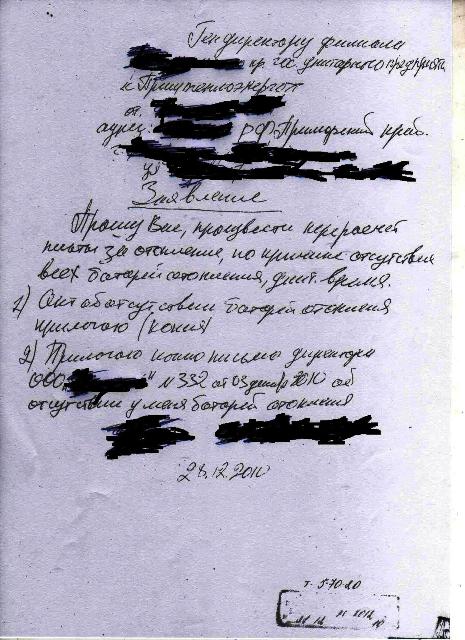 Гендиректору филиала
пр. га. унитарного предприят
к Примтеплоэнерго
от
адрес: РФ Приморский край.
ул
Заявление
Прошу Вас, произвести перерасчет
платы за отопление, по причине отсутствия
всех батарей отопления, длит. время.
1) Акт об отсутствии батарей отопления
прилогаю (копия)
2) Прилогаю копию письма директора
ООО " " N 332 от 03 декабр 2010 об
отсутствии у меня батарей отопления
28.12.2010
т. 5-70-20